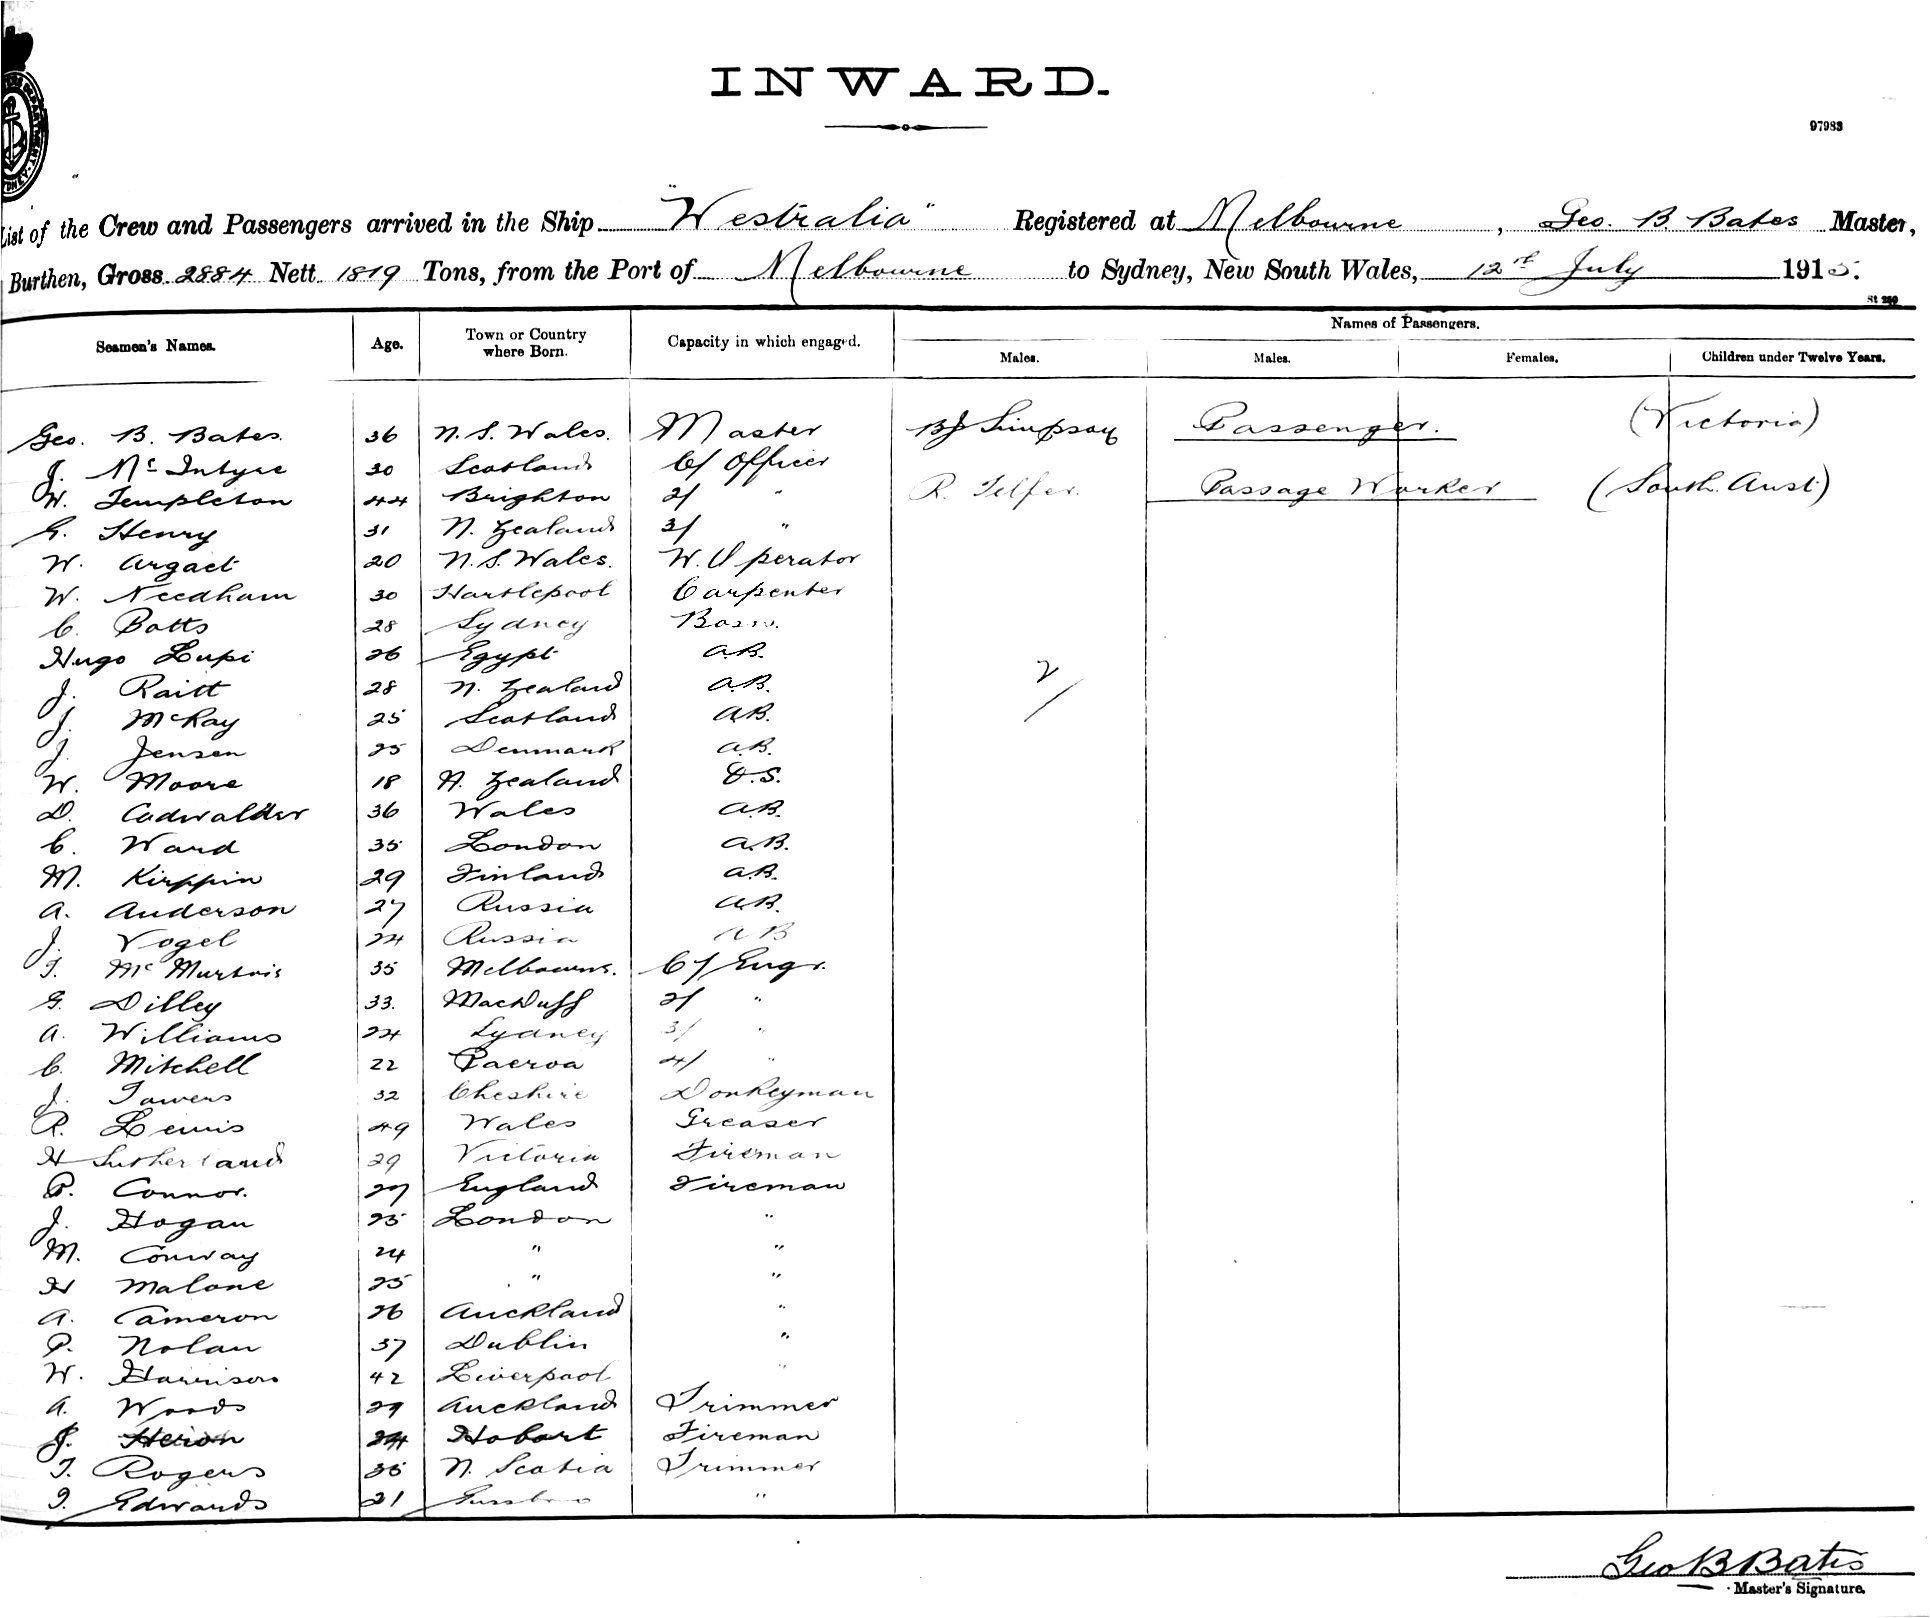 INWARD.
97983
List of the Crew and Passengers arrived in the Ship "Westralia" Registered at Melbourne, Geo. B. Bates Master,
Burthen, Gross 2884 Nett 1819 Tons, from the Port of Melbourne to Sydney, New South Wales, 12th July 1915.
St 240
Seamen's Names. Age. Town or Country where Born. Capacity in which engaged. Names of Passengers.
Males. Males. Females. Children under Twelve Years.
Geo. B. Bates. 36 N.S. Wales. Master BJ Simpson Passenger. (Victoria)
J. McIntyre 30 Scotland C/ Officer
W. Templeton 44 Brighton 2/ " R. Telfer. Passage Worker (South. Aust.)
G. Henry 31 N. Zealand 3/ "
W. Argaet 20 N.S. Wales. W. Operator
W. Needham 30 Hartlepool Carpenter
C. Botts 28 Sydney Bosn.
Hugo Lupi 26 Egypt A.B.
J. Raitt 28 N. Zealand A.B. 2/
J. McKay 25 Scotland A.B.
J. Jensen 25 Denmark A.B.
W. Moore 18 N. Zealand O.S.
D. Cadwalder 36 Wales A.B.
C. Ward 35 London A.B.
M. Kirppin 29 Finland A.B.
A. Anderson 27 Russia A.B.
J. Vogel 24 Russia A B
T. McMurtrie 35 Melbourne. C/ Engr.
G. Dilley 33. MacDuff 2/ "
A. Williams 24 Sydney 3/ "
C. Mitchell 22 Paeroa 4/ "
J. Towers 32 Cheshire Donkeyman
R. Lewis 49 Wales Greaser
H Sutherland 29 Victoria Fireman
P. Connor. 27 England Fireman
J. Hogan 25 London "
M. Conway 24 " "
H Malone 25 " "
A. Cameron 26 Auckland "
P. Nolan 37 Dublin "
W. Harrison 42 Liverpool "
A. Woods 29 Auckland Trimmer
J. Heron 24 Hobart Fireman
T. Rogers 35 N. Scotia Trimmer
T. Edwards 21 "
Geo B Bates
Master's Signature.